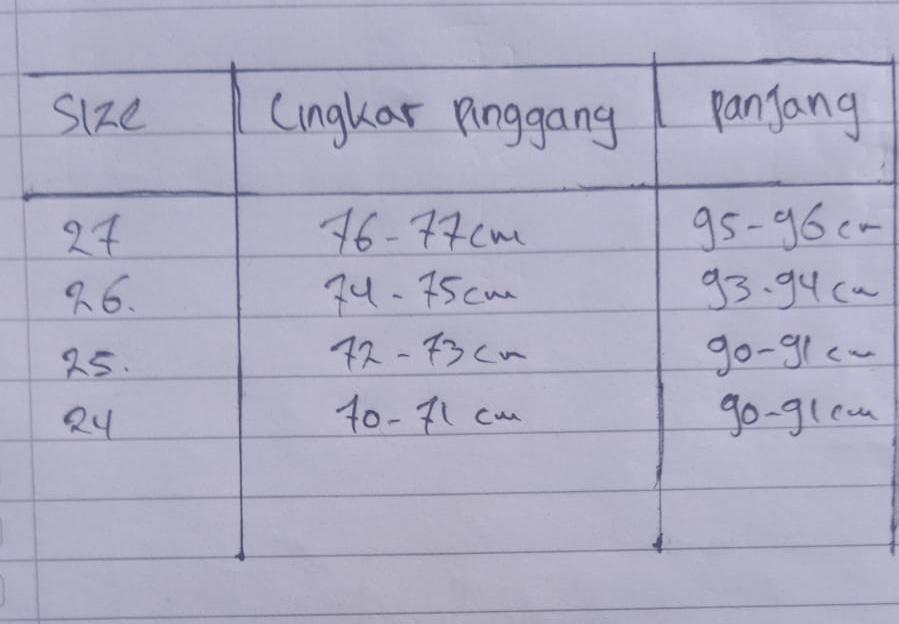 Size Lingkar Pinggang Panjang
27 76-77cm 95-96 cm
26. 74-75cm 93-94 cm
25. 72-73cm 90-91 cm
24 70-71 cm 90-91 cm